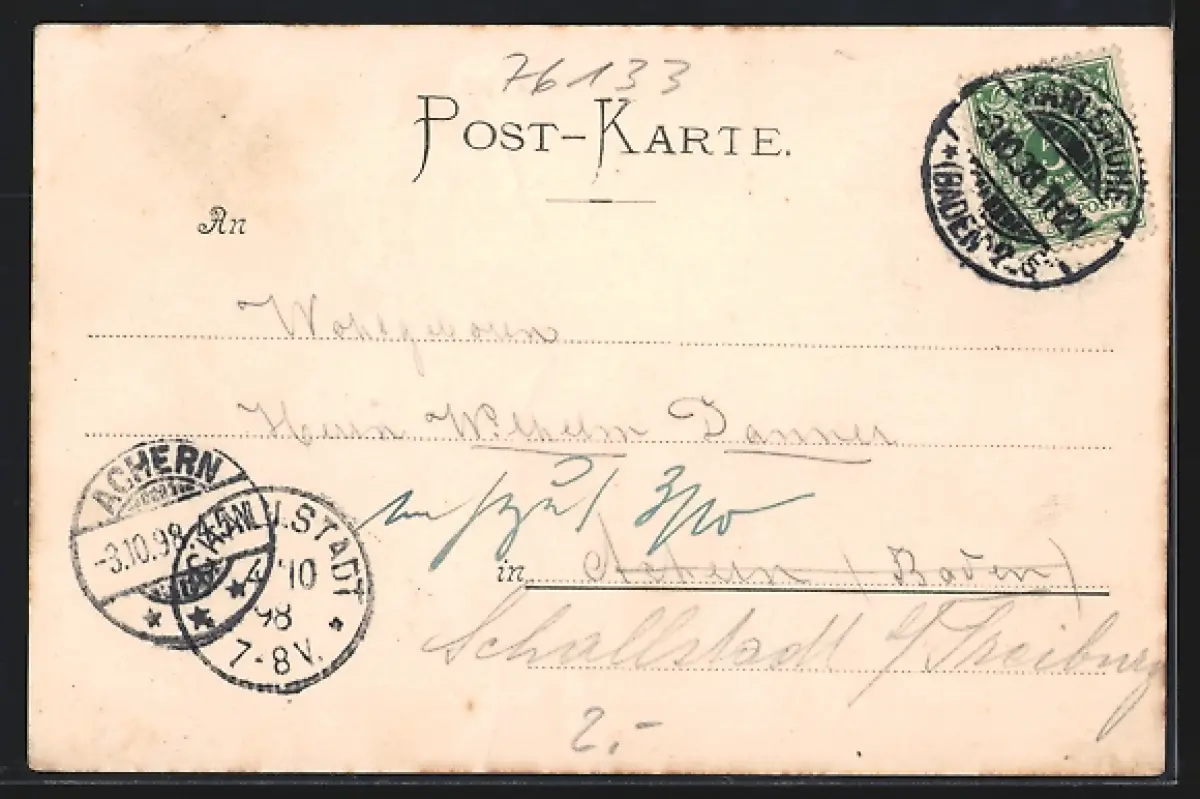 76133
POST-KARTE.
KARLSRUHE
3.10.98 11-12V
* (BADEN) 2.
5
An
Wohlgeboren
Herrn Wilhelm Danner
3/10
in Achern (Baden)
Schallstadt b/Freiburg
ACHERN
-3.10.98. 4-5N.
* *
SCHALLSTADT *
4/10
98
7-8V.
2.-